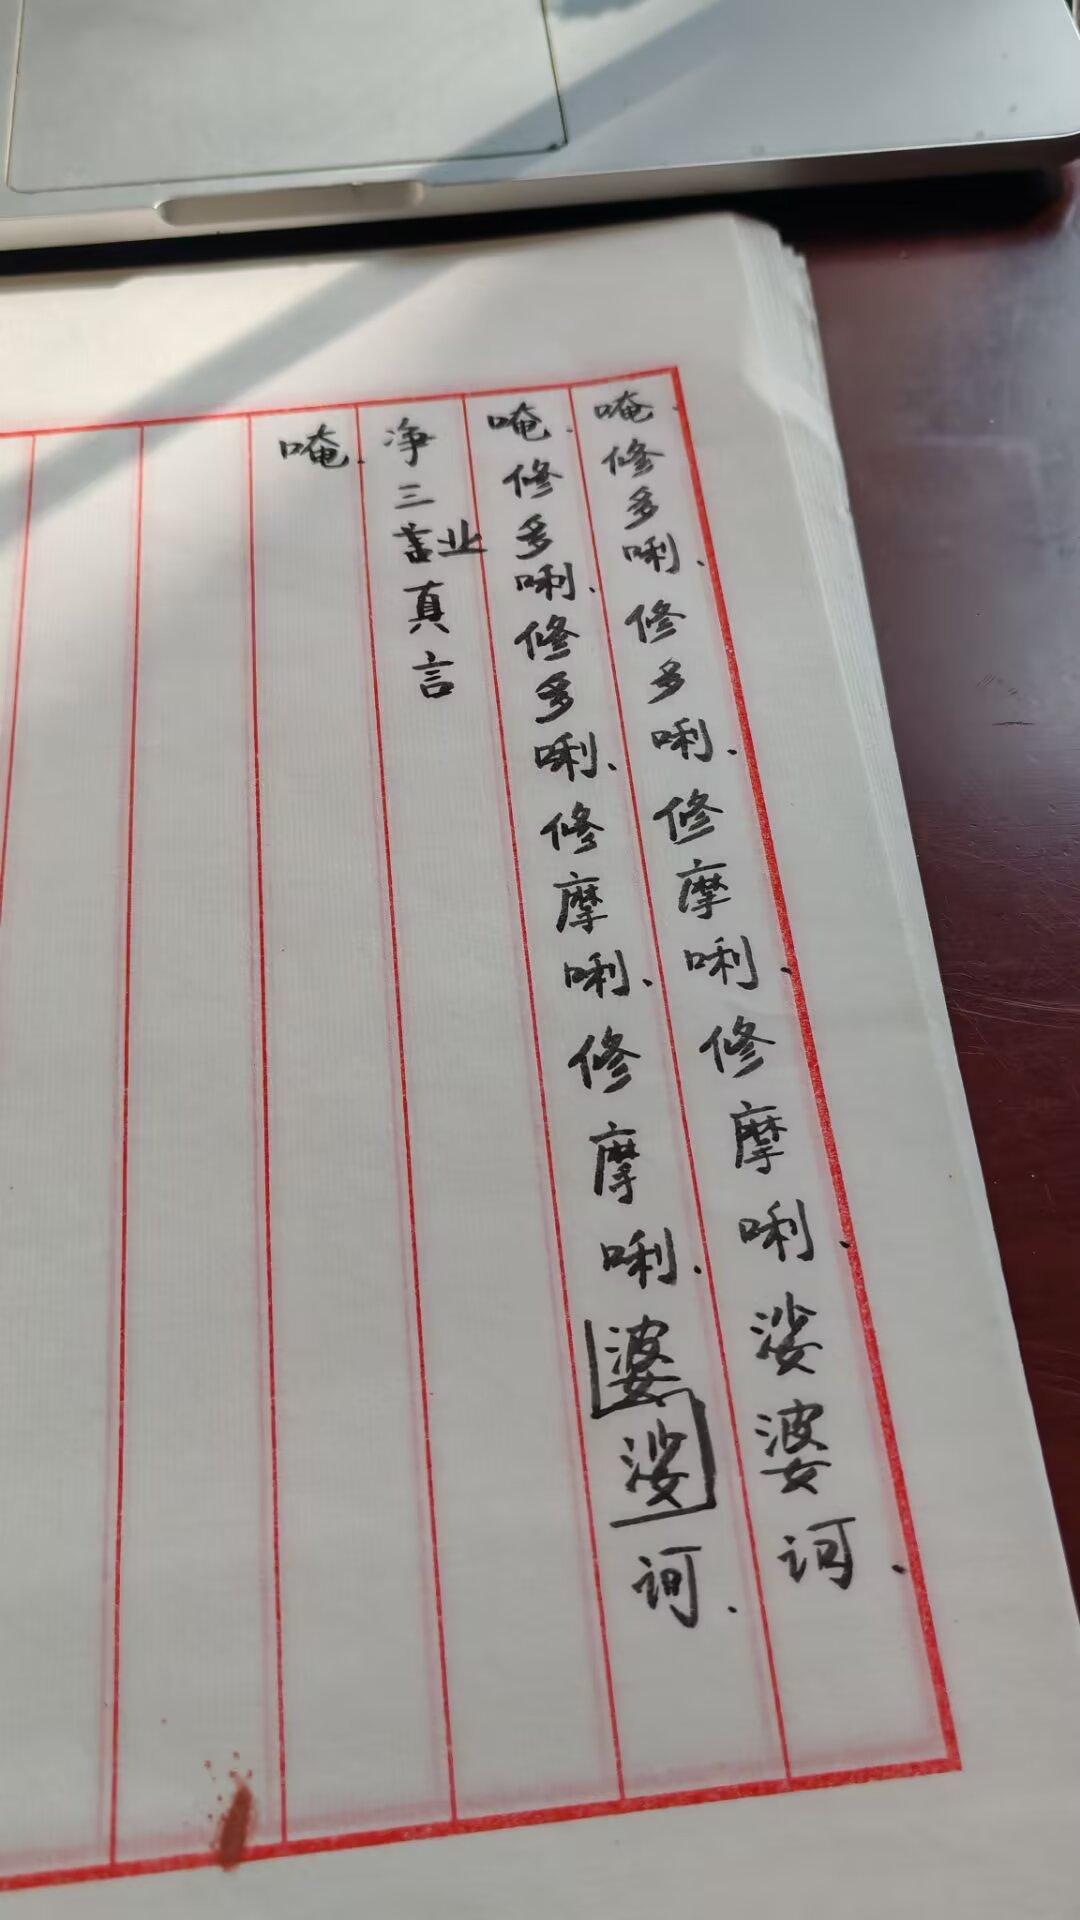 唵.修多唎.修多唎.修摩唎.修摩唎.娑婆诃.
唵.修多唎.修多唎.修摩唎.修摩唎.婆娑诃.
净三业真言
唵.